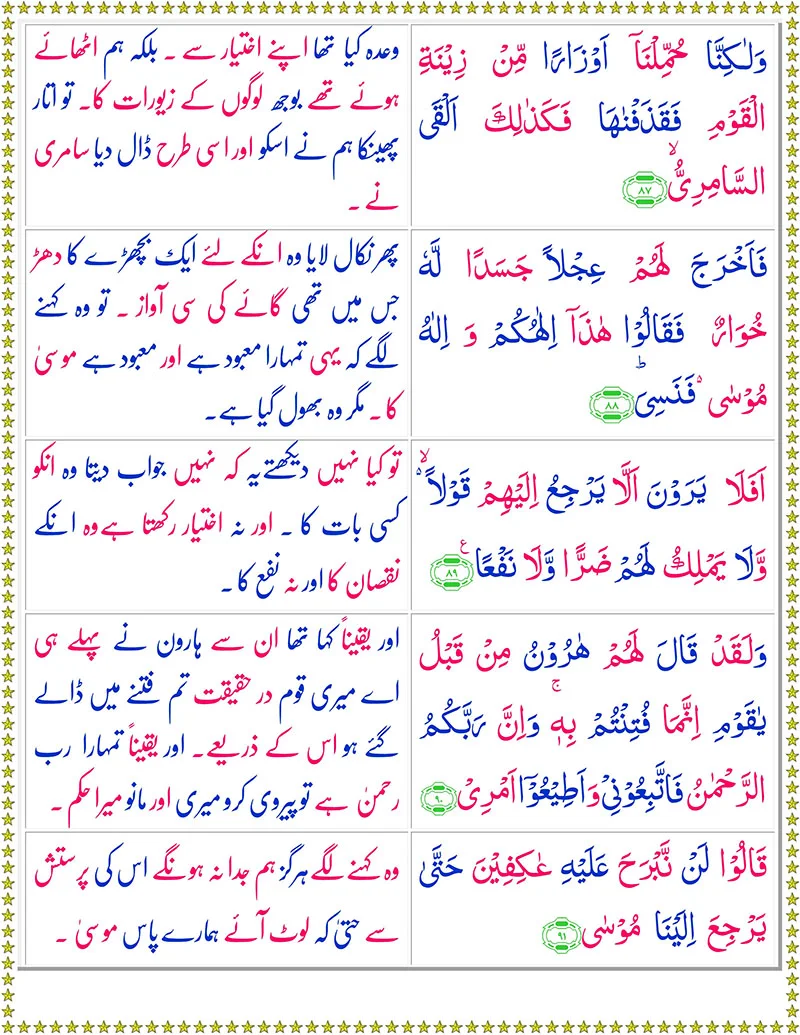 وَلٰـكِنَّا حُمِّلْنَاۤ اَوْزَارًا مِّنْ زِيْنَةِ
الْقَوْمِ فَقَذَفْنٰهَا فَكَذٰلِكَ اَلْقَى
السَّامِرِىُّ ۙ‏ ۸۷
وعدہ کیا تھا اپنے اختیار سے ۔ بلکہ ہم اٹھائے
ہوئے تھے بوجھ لوگوں کے زیورات کا۔ تو اتار
پھینکا ہم نے اسکو اور اسی طرح ڈال دیا سامری
نے ۔
فَاَخْرَجَ لَهُمْ عِجْلاً جَسَدًا لَّهٗ
خُوَارٌ فَقَالُوْا هٰذَاۤ اِلٰهُكُمْ وَ اِلٰهُ
مُوْسٰى ۥ فَنَسِىَ ؕ‏ ۸۸
پھر نکال لایا وہ انکے لئے ایک بچھڑے کا دھڑ
جس میں تھی گائے کی سی آواز ۔ تو وہ کہنے
لگے کہ یہی تمہارا معبود ہے اور معبود ہے موسیٰ
کا۔ مگر وہ بھول گیا ہے۔
اَفَلَا يَرَوْنَ اَلَّا يَرْجِعُ اِلَيْهِمْ قَوْلاً ۙ
وَّلَا يَمْلِكُ لَهُمْ ضَرًّا وَّلَا نَفْعًا ۸۹ ع
تو کیا نہیں دیکھتے یہ کہ نہیں جواب دیتا وہ انکو
کسی بات کا ۔ اور نہ اختیار رکھتا ہے وہ انکے
نقصان کا اور نہ نفع کا ۔
وَلَقَدْ قَالَ لَهُمْ هٰرُوْنُ مِنْ قَبْلُ
يٰقَوْمِ اِنَّمَا فُتِنْتُمْ بِهٖ‌ۚ وَاِنَّ رَبَّكُمُ
الرَّحْمٰنُ فَاتَّبِعُوْنِىْ وَاَطِيْعُوْۤا اَمْرِىْ ۹۰
اور یقیناً کہا تھا ان سے ہارون نے پہلے ہی
اے میری قوم در حقیقت تم فتنے میں ڈالے
گئے ہو اس کے ذریعے۔ اور یقیناً تمہارا رب
رحمنٰ ہے تو پیروی کرو میری اور مانو میرا حکم ۔
قَالُوْا لَنْ نَّبْرَحَ عَلَيْهِ عٰكِفِيْنَ حَتّٰى
يَرْجِعَ اِلَيْنَا مُوْسٰى ۹۱
وہ کہنے لگے ہرگز ہم جدا نہ ہونگے اس کی پرستش
سے حتیٰ کہ لوٹ آئے ہمارے پاس موسیٰ ۔